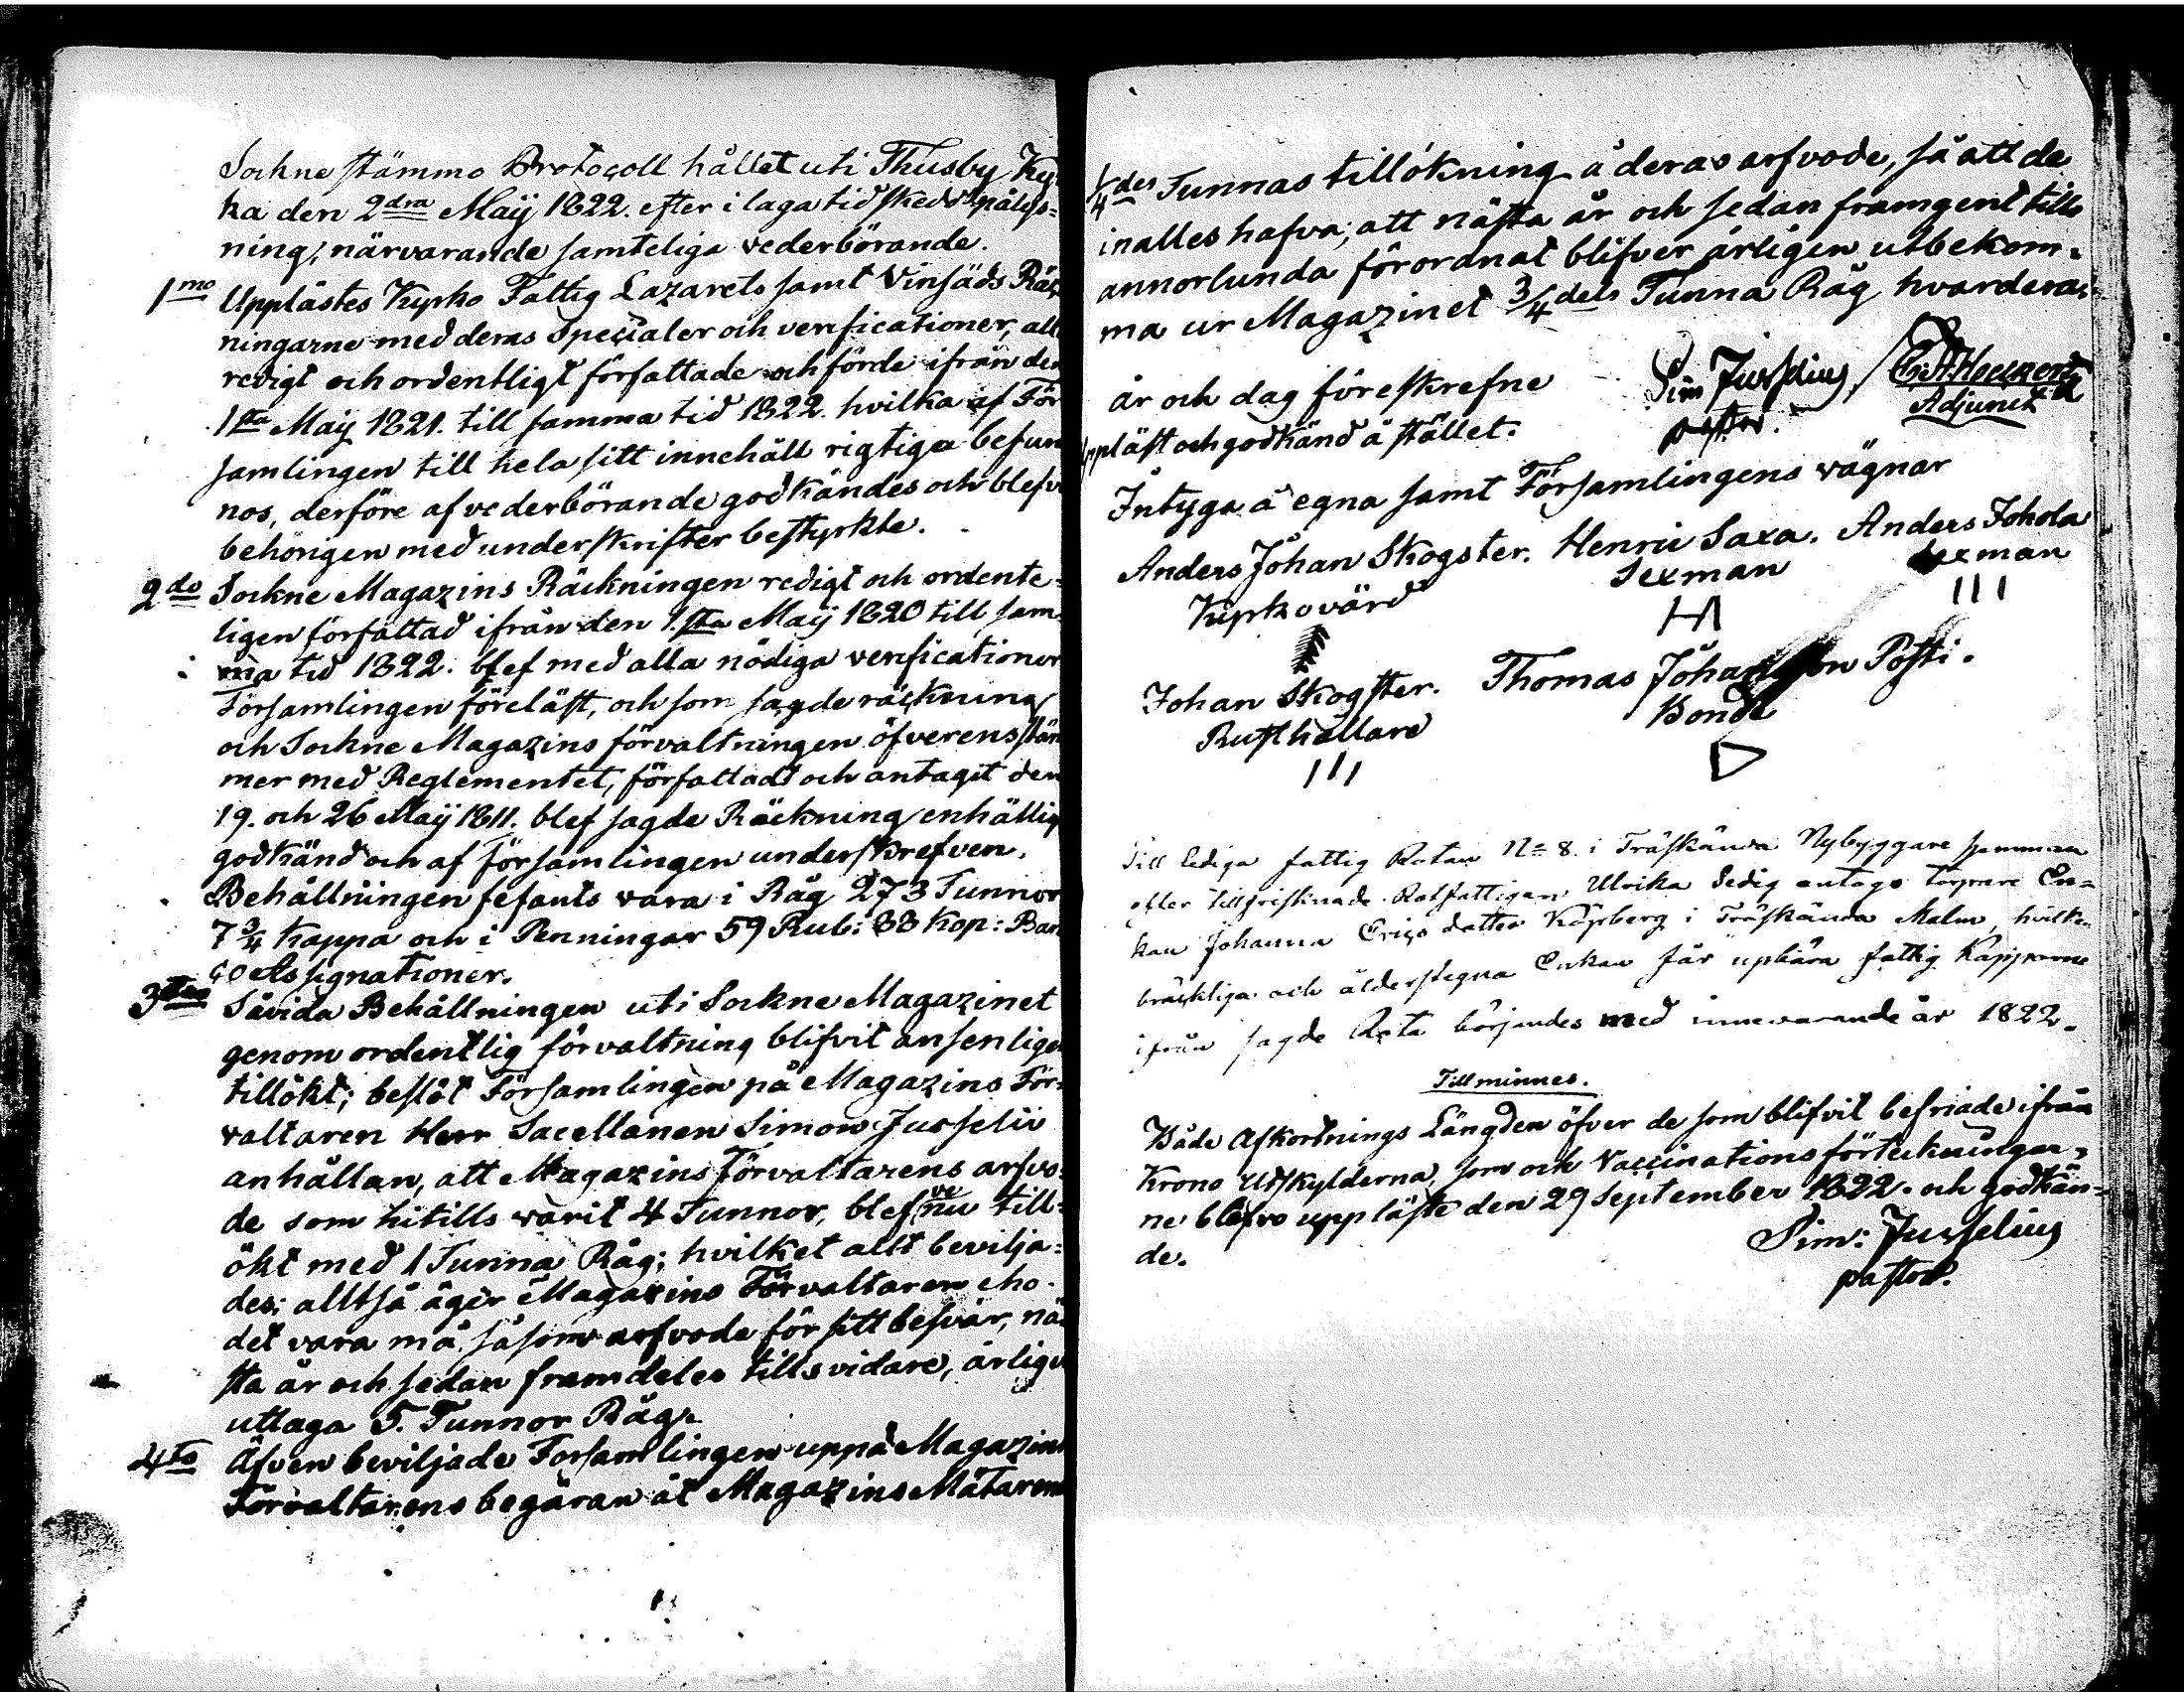 Sockne stämmo Protocoll hållet uti Thusby Kyr
ka den 2dra Maij 1822. efter i laga tid skedd pålys=
ning, närvarande samteliga vederbörande.
1mo Upplästes Kyrko Fattig Lazarets samt Vinsäds Räk
ningarne med deras Specialer och verificationer, all
redigt och ordentligt författade och förde ifrån den
1sta Maij 1821. till samma tid 1822. hvilka af För
samlingen till hela sitt innehåll rigtiga befun
nos, derföre af vederbörande godkändes och blefvo
behörigen med underskrifter bestyrkte.
2do Sockne Magazins Räckningen redigt och ordente=
ligen författad ifrån den 1.sta Maij 1820 till sam
ma tid 1822. blef med alla nödiga verificationer
Församlingen föreläst, och som sagde räckning
och Sockne Magazins förvaltningen öfverensstäm
mer med Reglementet, författadt och antagit den
19. och 26 Maij 1811. blef sagde Räckning enhällig
godkänd och af församlingen underskrefven.
Behållningen fefants vara i Råg 273 Tunnor
7 3/4 Kappa och i Penningar 59 Rub: 33 Kop: Ban
co Assignationer.
Såvida Behållningen uti Sockne Magazinet
genom ordentlig förvaltning blifvit ansenligen
tillökt; beslöt Församlingen på Magazins För=
valtaren Herr Sacellanen Simon Jusselii
anhållan, att Magazins Förvaltarens arfvo=
de som hitills varit 4 Tunnor, blefve nu till=
ökt med 1 Tunna Råg; hvilket allt bevilja=
des; alltså äger Magazins Förvaltaren eho
det vara må, såsom arfvode för sitt besvär, nä=
sta år och sedan framdeles tills vidare, årligen
uttaga 5. Tunnor Råg.
4to Äfven beviljade Forsamlingen uppå Magazins
Förvaltarens begäran åt Magazins Mätarena
1/4des Tunnas tillökning å deras arfvode, så att de
inalles hafva, att nästa år och sedan framgent tills
annorlunda förordnat blifver årligen utbekom=
ma ur Magazinet 3/4dels Tunna Råg hvardera.
år och dag föreskrefne
Sim Jusselius,
pastor. Adjunct
Uppläst och godkänd å stället.
Intyga å egna samt Församlingens vägnar
Anders Johan Skogster. Henric Saxa. Anders Johola
Kyrkovärd Sexman Sexman
Johan Skogster. Thomas Johansson Posti.
Rusthållare Bonde
Till lediga fattig Rotan No 8. i Träskända Nybyggare hemman
efter tillfrisknade Rotfattigan Ulrika Sedig antogs torpare En=
kan Johanna Erics dotter Köpberg i Träskända Malm, hvilken
bräckliga och ålderstegna Enkan får upbära fattig Kapparne
ifrån sagde Rota börjandes med innevarande år 1822.
Till minnes.
Både Afkortnings Längden öfver de som blifvit befriade ifrån
Krono Utskylderna, som ock Vaccinations förteckningar=
ne blefvo uppläste den 29 September 1822. och godkän=
de.
Sim: Jusselius
pastor.